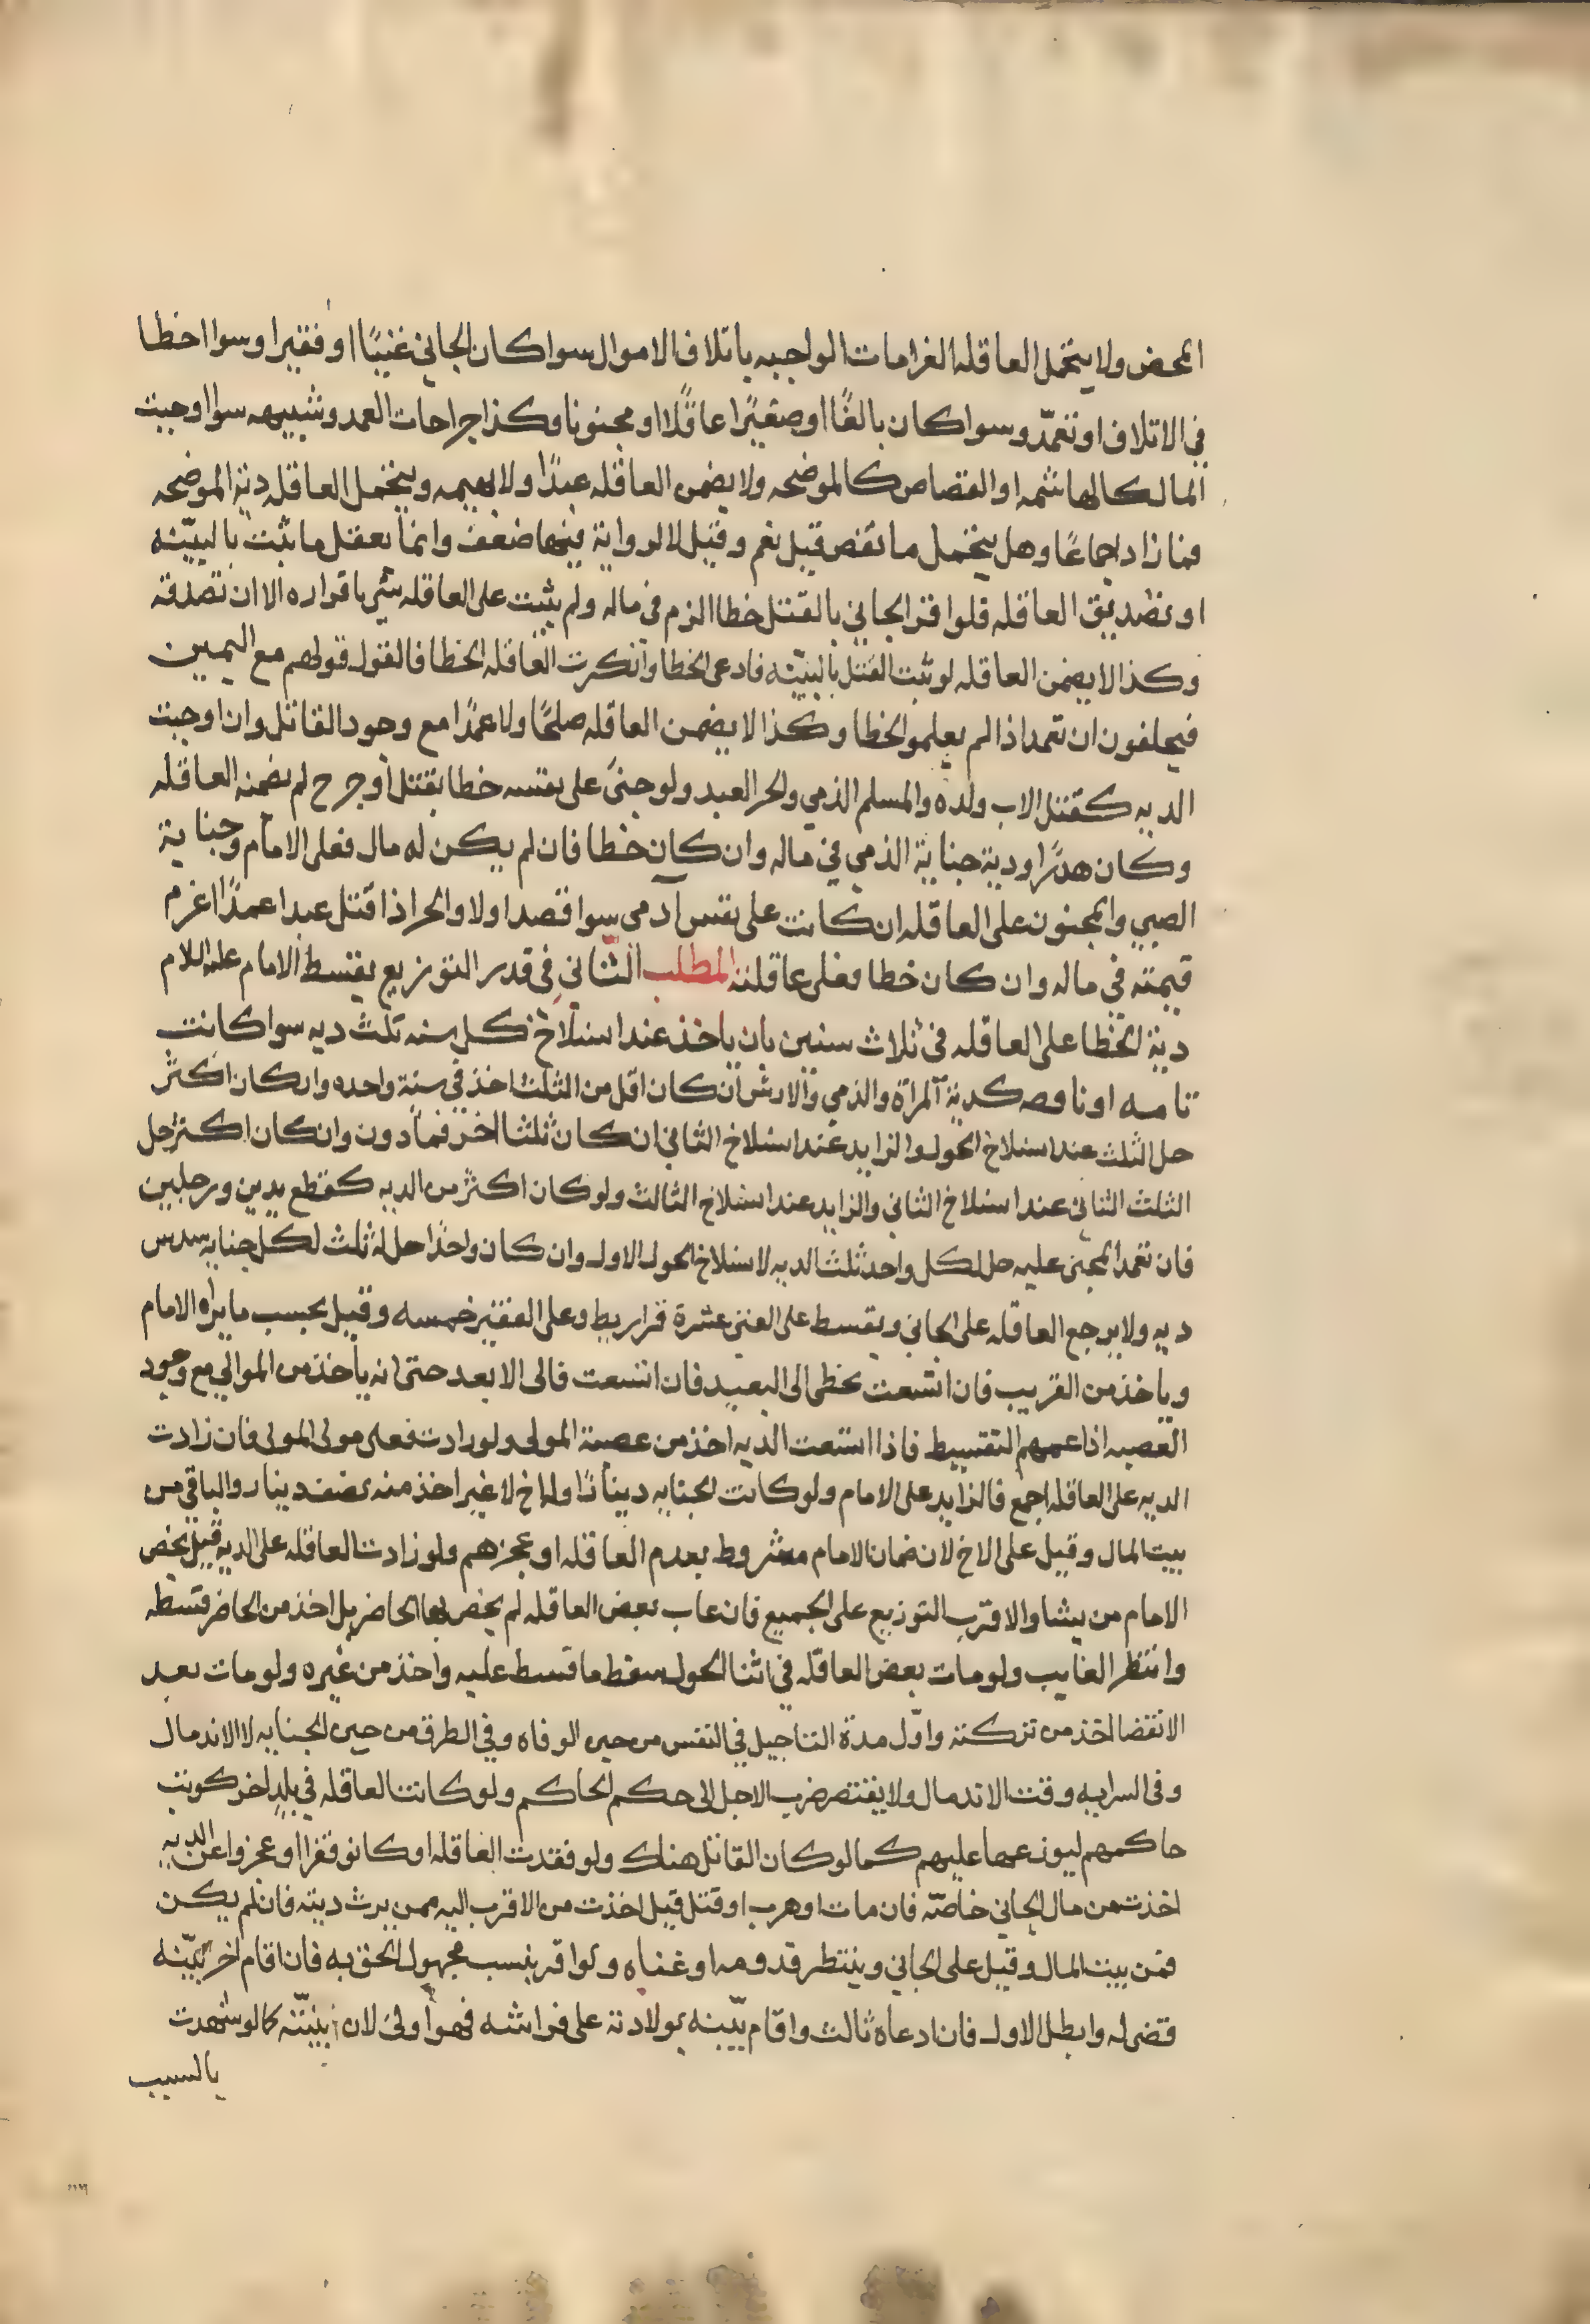 المحض ولا يتحمل العاقله الغرامات الواجبه باتلاف الاموال سوا كان الجاني غنيًا او فقيرا وسوا اخطا
في الاتلاف او تعمّد وسوا كان بالغًا او صغيرًا عاقلًا او مجنونا وكذا جراحات العمد وشبيهه سوا اوجبت
المال كالهاشمه او القصاص كالموضحه ولا يضمن العاقله عبدًا ولا بهيمه ويتحمل العاقله دية الموضحه
فما زاد اجماعًا وهل يتحمل ما نقص قيل نعم وقيل لا لرواية فيها ضعف وانما يعقل ما يثبت بالبيّنه
او تصديق العاقله فلو اقر الجاني بالقتل خطا الزم في ماله ولم يثبت على العاقله شي باقراره الا ان تصدقه
وكذا لا يضمن العاقله لو ثبت القتل بالبيّنه فادعى الخطا وانكرت العاقله الخطا فالقول قولهم مع اليمين
فيحلفون ان تعمد اذا لم يعلموا الخطا وكذا لا يضمن العاقله صلحًا ولا عمدًا مع وجود القاتل وان اوجبت
الديه كقتل الاب ولده والمسلم الذمي والحر العبد ولو جنى على نفسه خطا بقتل او جرح لم يضمنه العاقله
وكان هدرًا ودية جناية الذمي في ماله وان كان خطا فان لم يكن له مال فعلى الامام وجناية
الصبي والمجنون على العاقله ان كانت على نفس آدمي سوا قصد اولا والحر اذا قتل عبدا عمدًا اغرم
قيمته في ماله وان كان خطا فعلى عاقلته المطلب الثاني في قدر التوزيع يقسط الامام عليه السلام
دية الخطا على العاقله في ثلاث سنين بان ياخذ عند انسلاخ كل سنه ثلث ديه سوا كانت
تامه او ناقصه كدية المراة والذمي والارش ان كان اقل من الثلث اخذ في سنة واحده وان كان اكثر
حل الثلث عند انسلاخ الحول والزايد عند انسلاخ الثاني ان كان ثلثا اخر فما دون وان كان اكثر حل
الثلث الثاني عند انسلاخ الثاني والزايد عند انسلاخ الثالث ولو كان اكثر من الديه كقطع يدين ورجلين
فان تعدد المجنى عليه حل لكل واحد ثلث الديه لانسلاخ الحول الاول وان كان واحدًا حل له ثلث لكل جنايه سدس
ديه ولا يرجع العاقله على الجاني ويقسط على الغني عشرة قراريط وعلى الفقير خمسه وقيل بحسب ما يراه الامام
وياخذ من القريب فان اتسعت تخطى الى البعيد فان اتسعت فالى الابعد حتى انه ياخذ من الموالي مع وجود
العصبه اذا عمهم التقسيط فاذا اتسعت الديه اخذ من عصبة المولى ولو زادت فعلى مولى المولى فان زادت
الديه على العاقله اجمع فالزايد على الامام ولو كانت الجنايه دينارًا وله اخ لا غير اخذ منه نصف دينار والباقي من
بيت المال وقيل على الاخ لان ضمان الامام مشروط بعدم العاقله او عجزهم ولو زادت العاقله على الديه قيل يخص
الامام من يشا والاقرب التوزيع على الجميع فان غاب بعض العاقله لم يخص بها الحاضر بل اخذ من الحاضر قسطه
وانتظر الغايب ولو مات بعض العاقله في اثنا الحول سقط ما قسط عليه واخذ من غيره ولو مات بعد
الانقضا اخذ من تركته واوّل مدة التاجيل في النفس من حين الوفاه وفي الطرف من حين الجنايه لا الاندمال
وفي السرايه وقت الاندمال ولا يفتقر ضرب الاجل الى حكم الحاكم ولو كانت العاقله في بلد اخر كوتب
حاكمهم ليوزعها عليهم كما لو كان القاتل هناك ولو فقدت العاقله او كانو فقرا او عجزوا عن الديه
اخذت من مال الجاني خاصّه فان مات او هرب او قتل قيل اخذت من الاقرب اليه ممن يرث ديته فان لم يكن
فمن بيت المال وقيل على الجاني وينتظر قدومه او غناه ولو اقر بنسب مجهول الحق به فان اقام اخر بيّنه
قضى له وابطل الاول فان ادعاه ثالث واقام بيّنه بولادته على فراشه فهو اولى لان بينته كما لو شهدت
بالسبب